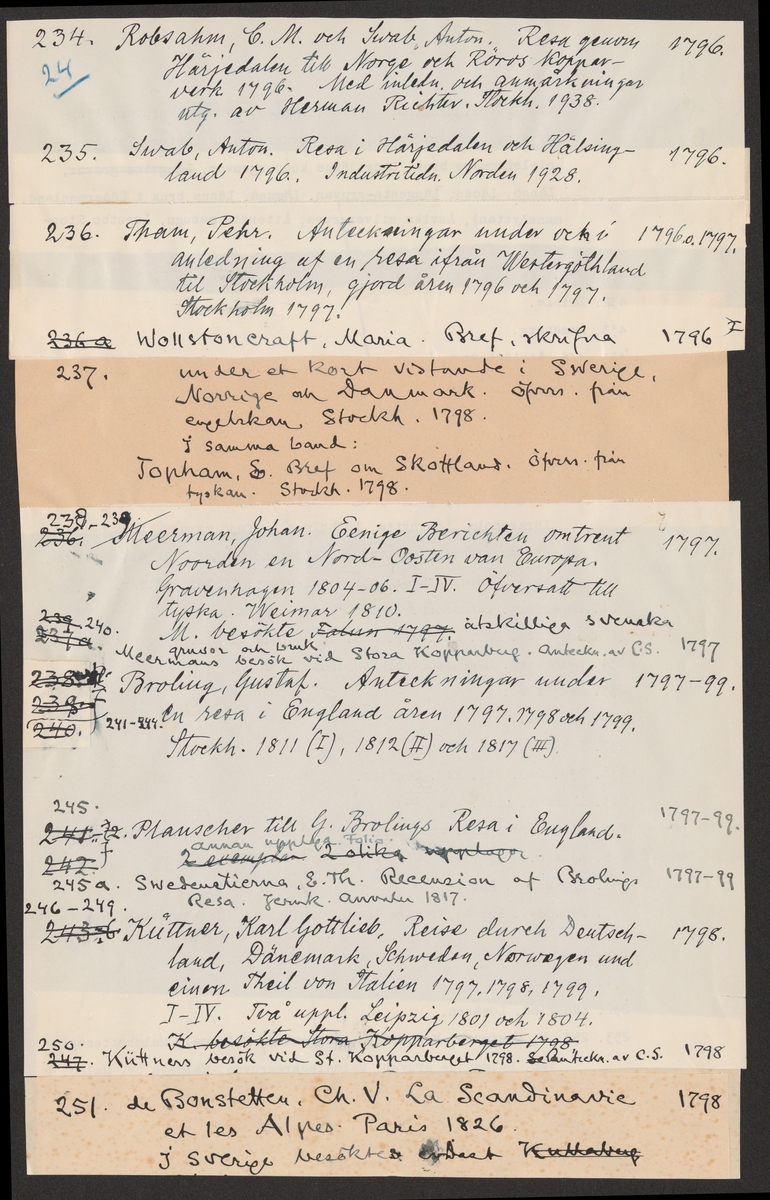 234. Robsahm, C. M. och Swab, Anton. Resa genom 1796.
24 Härjedalen till Norge och Röros Koppar-
verk 1796. Med inledn. och anmärkningar
utg. av Herman Richter. Stockh. 1938.
235. Swab, Anton. Resa i Härjedalen och Hälsing- 1796.
land 1796. Industritidn. Norden 1928.
236. Tham, Pehr. Anteckningar under och i 1796 o. 1797.
anledning af en resa ifrån Westergöthland
til Stockholm, gjord åren 1796 och 1797.
Stockholm 1797.
236 a Wollstoncraft, Maria. Bref, skrifna 1796
237. under et kort vistande i Swerige,
Norrige och Danmark. Öfvers. från
engelskan. Stockh. 1798.
I samma band:
Topham, E. Bref om Skottland. Öfvers. från
tyskan. Stockh. 1798.
238-239
236. Meerman, Johan. Eenige Berichten omtrent 1797.
Noorden en Nord-Oosten van Europa.
Gravenhagen 1804-06. I-IV. Öfversatt till
tyska. Weimar 1810.
239. 240. M. besökte Falun 1797. åtskilliga svenska
gruvor och bruk.
237a. Meermans besök vid Stora Kopparberg. Anteckn. av C.S. 1797
238. Broling, Gustaf. Anteckningar under 1797-99.
239. 241-244. en resa i England åren 1797, 1798 och 1799.
240. Stockh. 1811 (I), 1812 (II) och 1817 (III)
245.
241-2. Planscher till G. Brolings Resa i England. 1797-99.
annan upplaga. Folio.
242. 2 exemplar 2 olika upplagor
245 a. Swedenstierna, E. Th. Recension af Brolings 1797-99
Resa. Jernk. Annaler 1817.
246-249.
243-6 Küttner, Karl Gottlieb, Reise durch Deutsch- 1798.
land, Dänemark, Schweden, Norwegen und
einen Theil von Italien 1797, 1798, 1799.
I-IV. Två uppl. Leipzig 1801 och 1804.
K. besökte Stora Kopparberget 1798
250.
247. Küttners besök vid St. Kopparberget 1798. Anteckn. av C.S. 1798
251. de Bonstetten, Ch. V. La Scandinavie 1798
et les Alpes. Paris 1826.
I Sverige besöktes endast Kullaberg